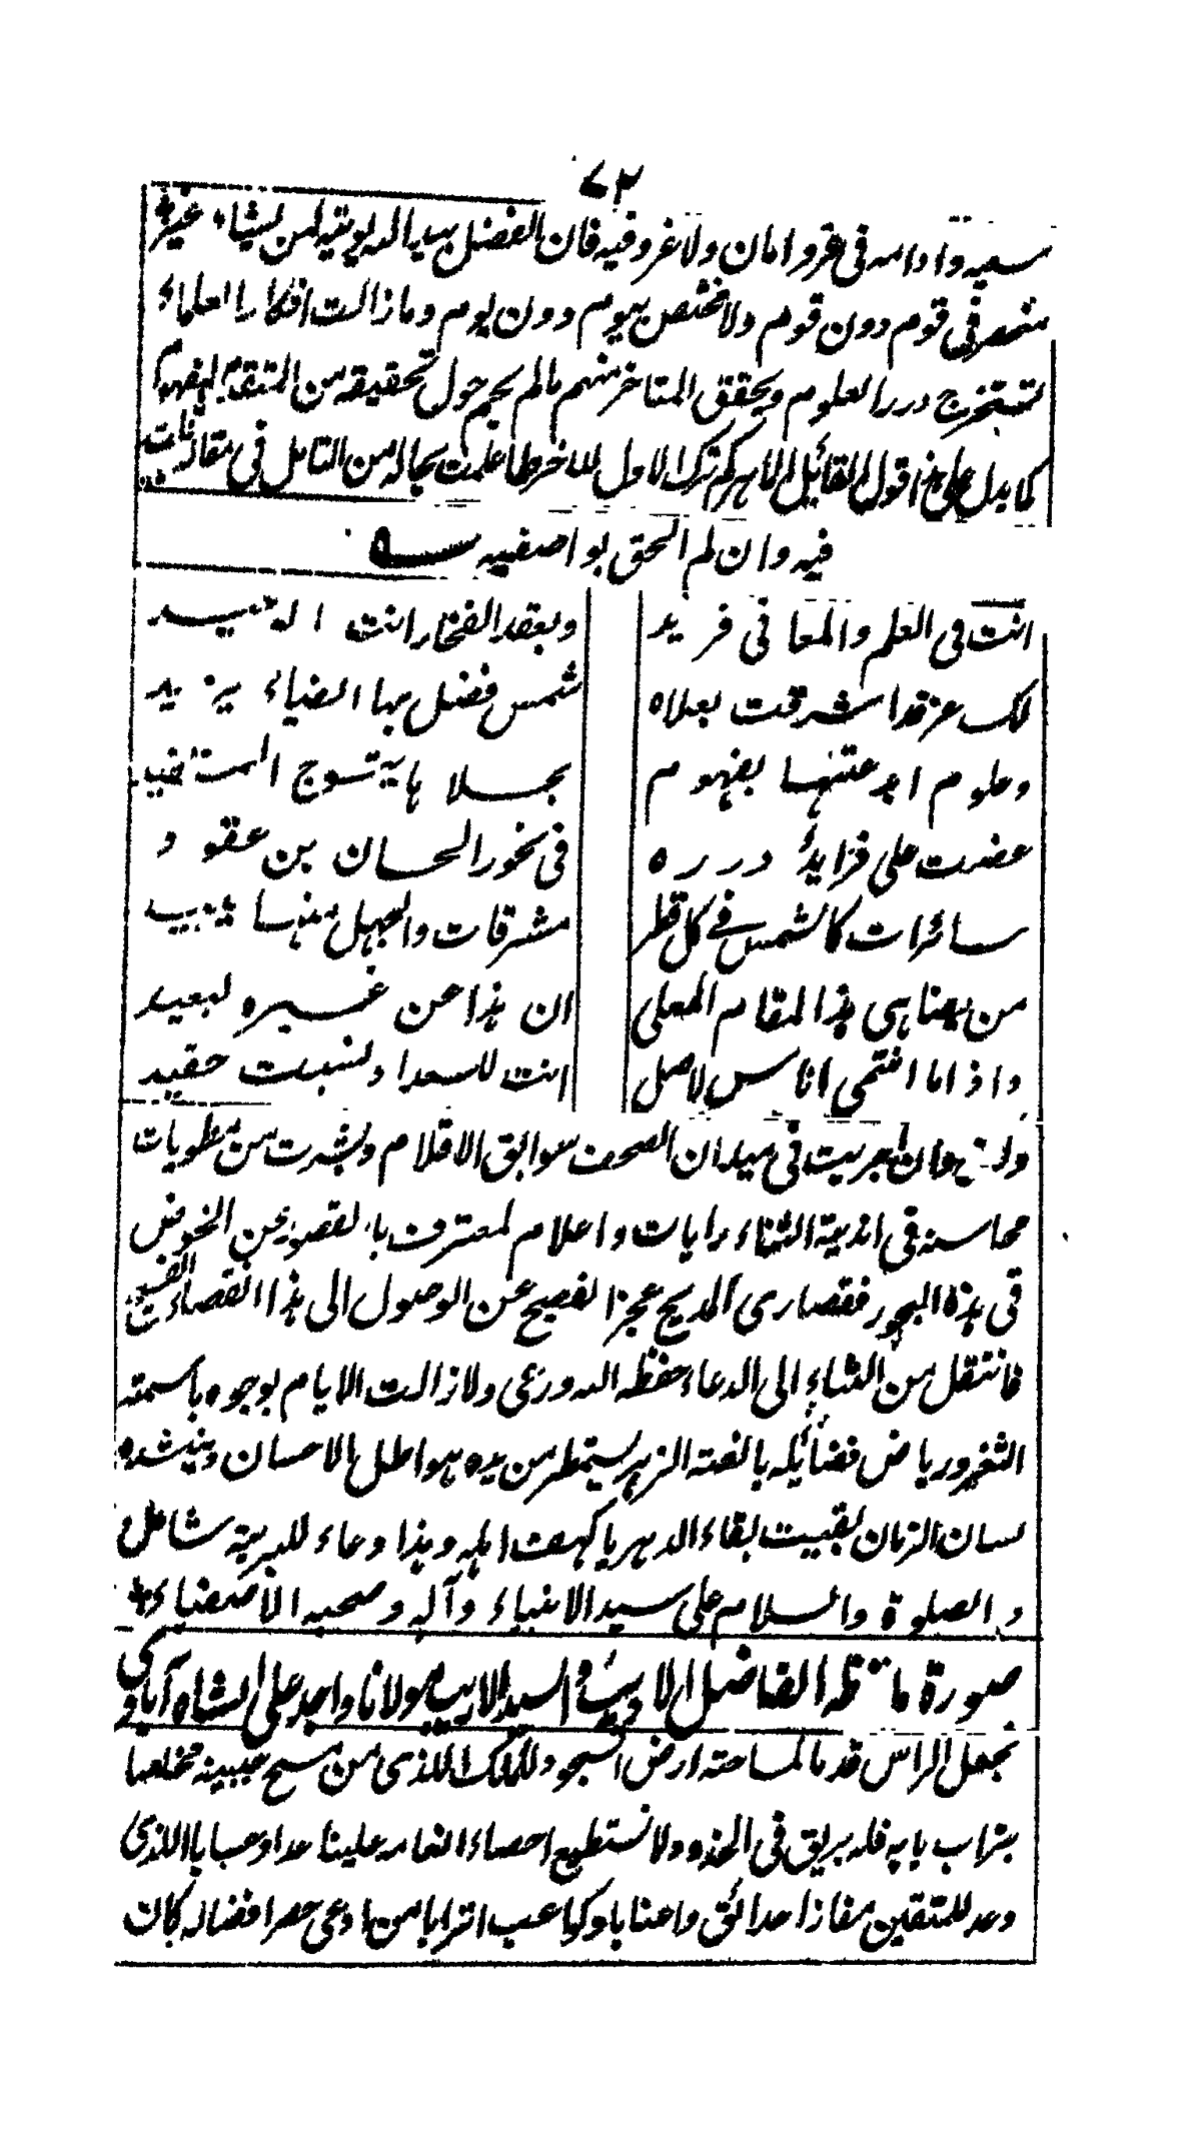 ٧٢
سعيه وادامه فى عز وامان ولاغرو فيه فان الفضل بيد الله يوتيه لمن يشاء غير
منحصر فى قوم دون قوم ولا مختص بيوم دون يوم وما زالت افكار العلماء
تستخرج درر العلوم ويحقق المتاخر منهم مالم يحم حول تحقيقه من المتقدم الفهوم
كما يدل على هذا قول القائل الماهر كم ترك الاول للاخر طا علمت بحاله من التامل فى مقالة قلت
فيه وان لم الحق بواصفيه
انت فى العلم والمعانى فريد وبعقد الفخار انت
لك عز قد اشرقت بعلاه شمس فضل بها الضياء يزيد
وعلوم ابدعتها بفهوم بجلاها يتوج المستفيد
على فرايد درره فى نحور الحسان من عقود
سائرات كالشمس فى كل قطر مشرقات والجهل منها
من يضاهى هذا المقام المعلى ان هذا عن غيره لبعيد
واذا ما انتمى اناس لاصل انت للسعد اذ نسبت حفيد
وان جريت فى ميدان الصحف سوابق الاقلام ونشرت من مطويات
محاسنه فى اندية الثناء رايات واعلام لمعترف بالقصور عن الخوض
فى هذه البحور فقصارى المديح عجز الفصيح عن الوصول الى هذا الفضاء الفسيح
فانتقل من الثناء الى الدعاء حفظه الله ورعى ولازالت الايام بوجوده باسمته
الثغور ورياض فضائله يانعته الزهر يستمطر من يده هواطل الاحسان وينشده
لسان الزمان بقيت بقاء الدهر يا كهف اهله وهذا دعاء للبرية شامل
والصلوة والسلام على سيد الانبياء وآله وصحبه الاصفياء
صورة ما نظمه الفاضل الاديب السيد الاريب مولانا واجد على الشاه آبادى
نجعل الراس قدما لمساحته ارض السجود للملك الذى من مسح جبينه مخلصا
بتراب بابه فله بريق فى الخدود ولا نستطيع احصاء انعامه علينا عدا وحسابا اللذى
وعد للمتقين مفازا حدائق واعنابا وكواعب اترابا من ادعى حصر افضاله كان